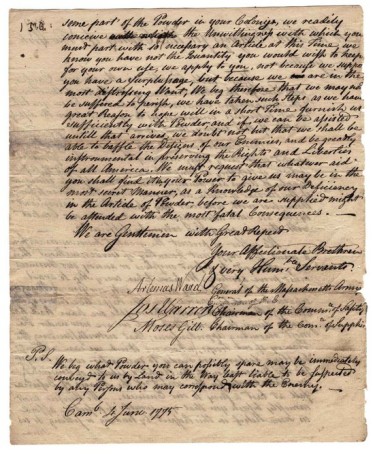 some part of the Powder in your Colonys, we readily
conceive the Unwillingness with which you
must part with so necessary an Article at this Time, we
know you have not the Quantity you would wish to keep
for your own use, we apply to you, not because we suppose
you have a Surplusage, but because we are in the
most distressing Want, We beg therefore that we may not
be suffered to perish, we have taken such steps as we have
great Reason to hope will in a short Time furnish us
sufficiently with Powder, and if we can be assisted
untill that arrives, we doubt not but that we shall be
able to baffle the Designs of our Enemies, and be greatly
instrumental in preserving the Rights and Liberties
of all America. We must request that whatever aid
you shall find in your Power to give us may be in the
most secret Manner, as a Knowledge of our Deficiency
in the Article of Powder, before we are supplied might
be attended with the most fatal Consequences.
We are Gentlemen with Great Respect
Your Affectionate Brethren
& very Hum. Servants
Artemas Ward General of the Massachusetts Army
Jos Warren Chairman of the Com of Safety
Moses Gill Chairman of the Com of Supplies
P.S. We beg what Powder you can possibly spare may be immediately
conveyed to us by Land in the Way least liable to be suspected
by any Persons who may correspond with the Enemy.
Camb. 4 June 1775